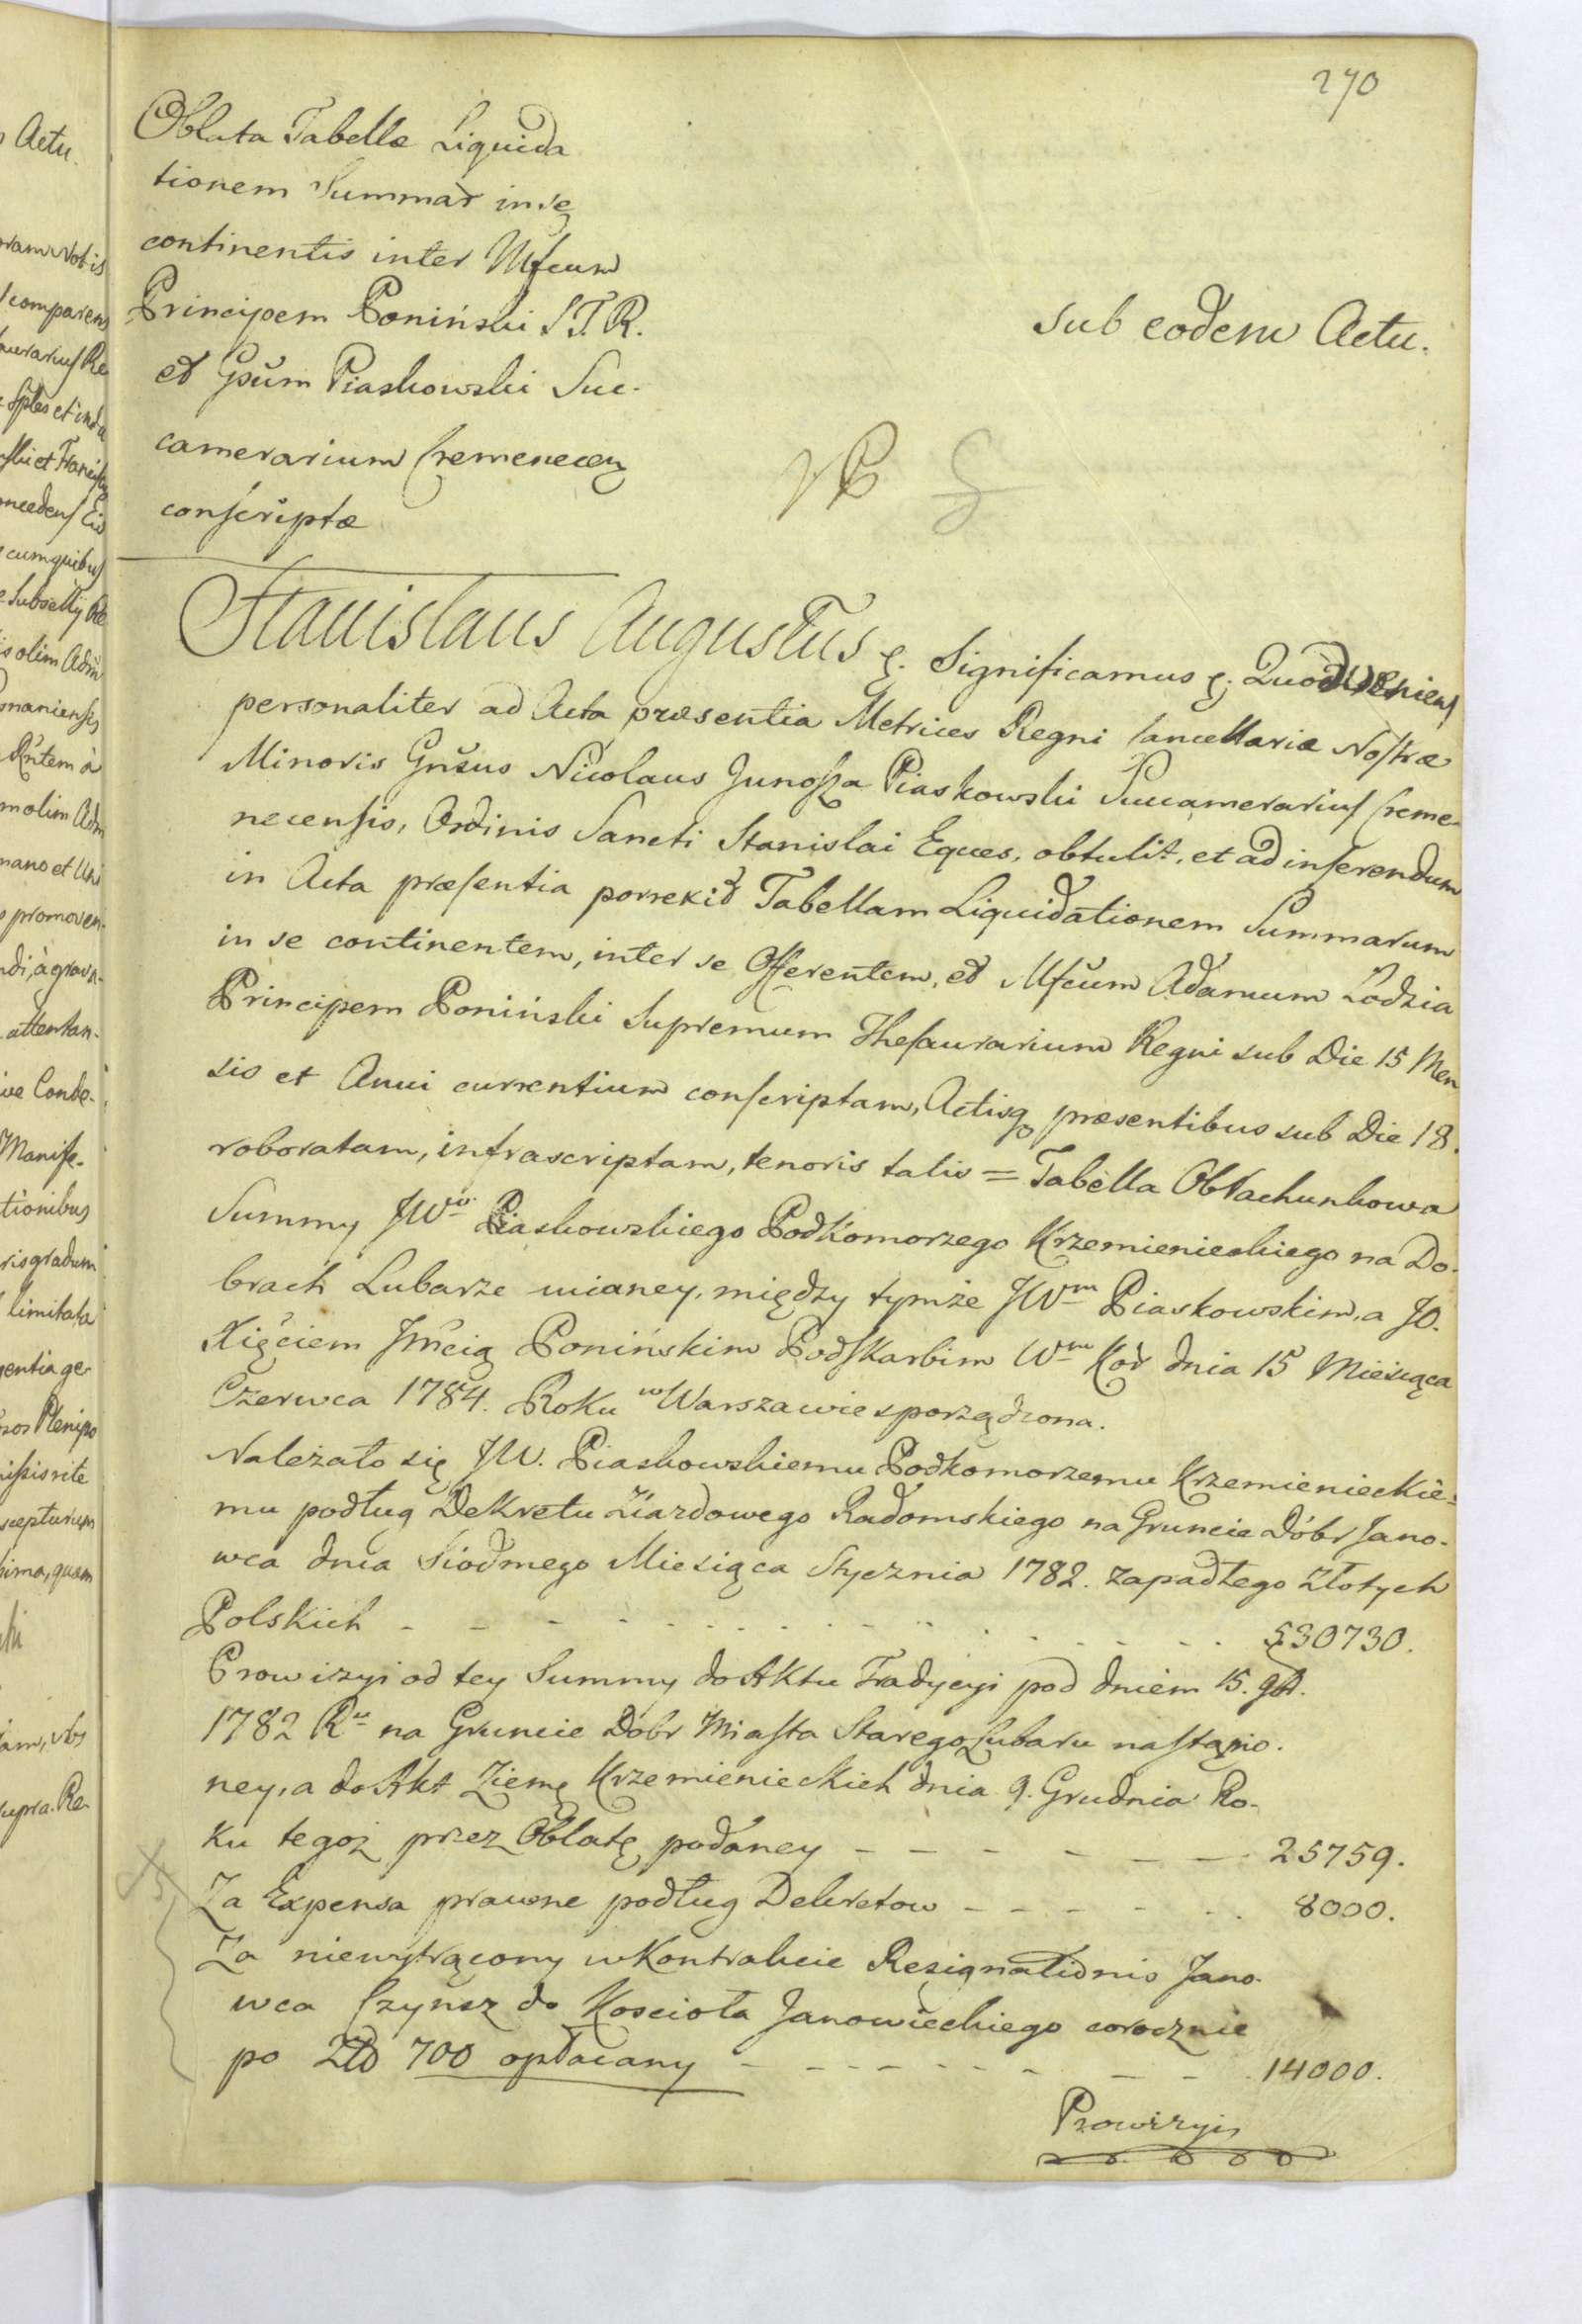 270
Oblata Tabellæ Liquida
tionem Summar̃ in se
continentis inter Mfcum
Principem Poniński S.T.R.
et Gñum Piaskowski Suc-
camerarium Cremenecen
conscriptæ
Sub eodem Actu.
Stanislaus Augustus Significamus Quod veniens
personaliter ad Acta præsentia Metrices Regni Cancellariæ Nostræ
Minoris Gñsus Nicolaus Junosza Piaskowski Succamerarius Creme-
necensis, Ordinis Sancti Stanislai Eques, obtulit, et ad inserendum
in Acta præsentia porrexit Tabellam Liquidationem Summarum
in se continentem, inter se Offerentem, et Mfcum Adamum Łodzia
Principem Poniński Supremum Thesaurarium Regni sub Die 15 Men
sis et Anni currentium conscriptam, Actisq præsentibus sub Die 18.
roboratam, infrascriptam, tenoris talis = Tabella Obrachunkowa
Summy JWo Piaskowskiego Podkomorzego Krzemienieckiego na Do-
brach Lubarze mianey, między tymże JWm Piaskowskim, a JO.
Xięciem Jmcią Ponińskim Podskarbim Wm Kor dnia 15 Miesiąca
Czerwca 1784. Roku w Warszawie sporządzona.
Należało się JW. Piaskowskiemu Podkomorzemu Krzemienieckie-
mu podług Dekretu Ziazdowego Radomskiego na Gruncie Dóbr Jano-
wca dnia Siodmego Miesiąca Stycznia 1782. zapadłego Złotych
Polskich - - - - - - - - - - 530730.
Prowizyi od tey Summy do Aktu Tradycyi pod dniem 15. 9br.
1782 Ru na Gruncie Dobr Miasta Starego Lubaru nastąpio-
ney, a do Akt Ziemę Krzemienieckich dnia 9. Grudnia Ro-
ku tegoż przez Oblatę podaney - - - - - - - 25759.
Za Expensa prawne podług Dekretow - - - - - - 8000.
Za niewytrącony w Kontrakcie Resignationis Jano-
wca Czynsz do Kościoła Janowieckiego corocznie
po Złł 700 opłacany - - - - - - - - 14000.
Prowizyi